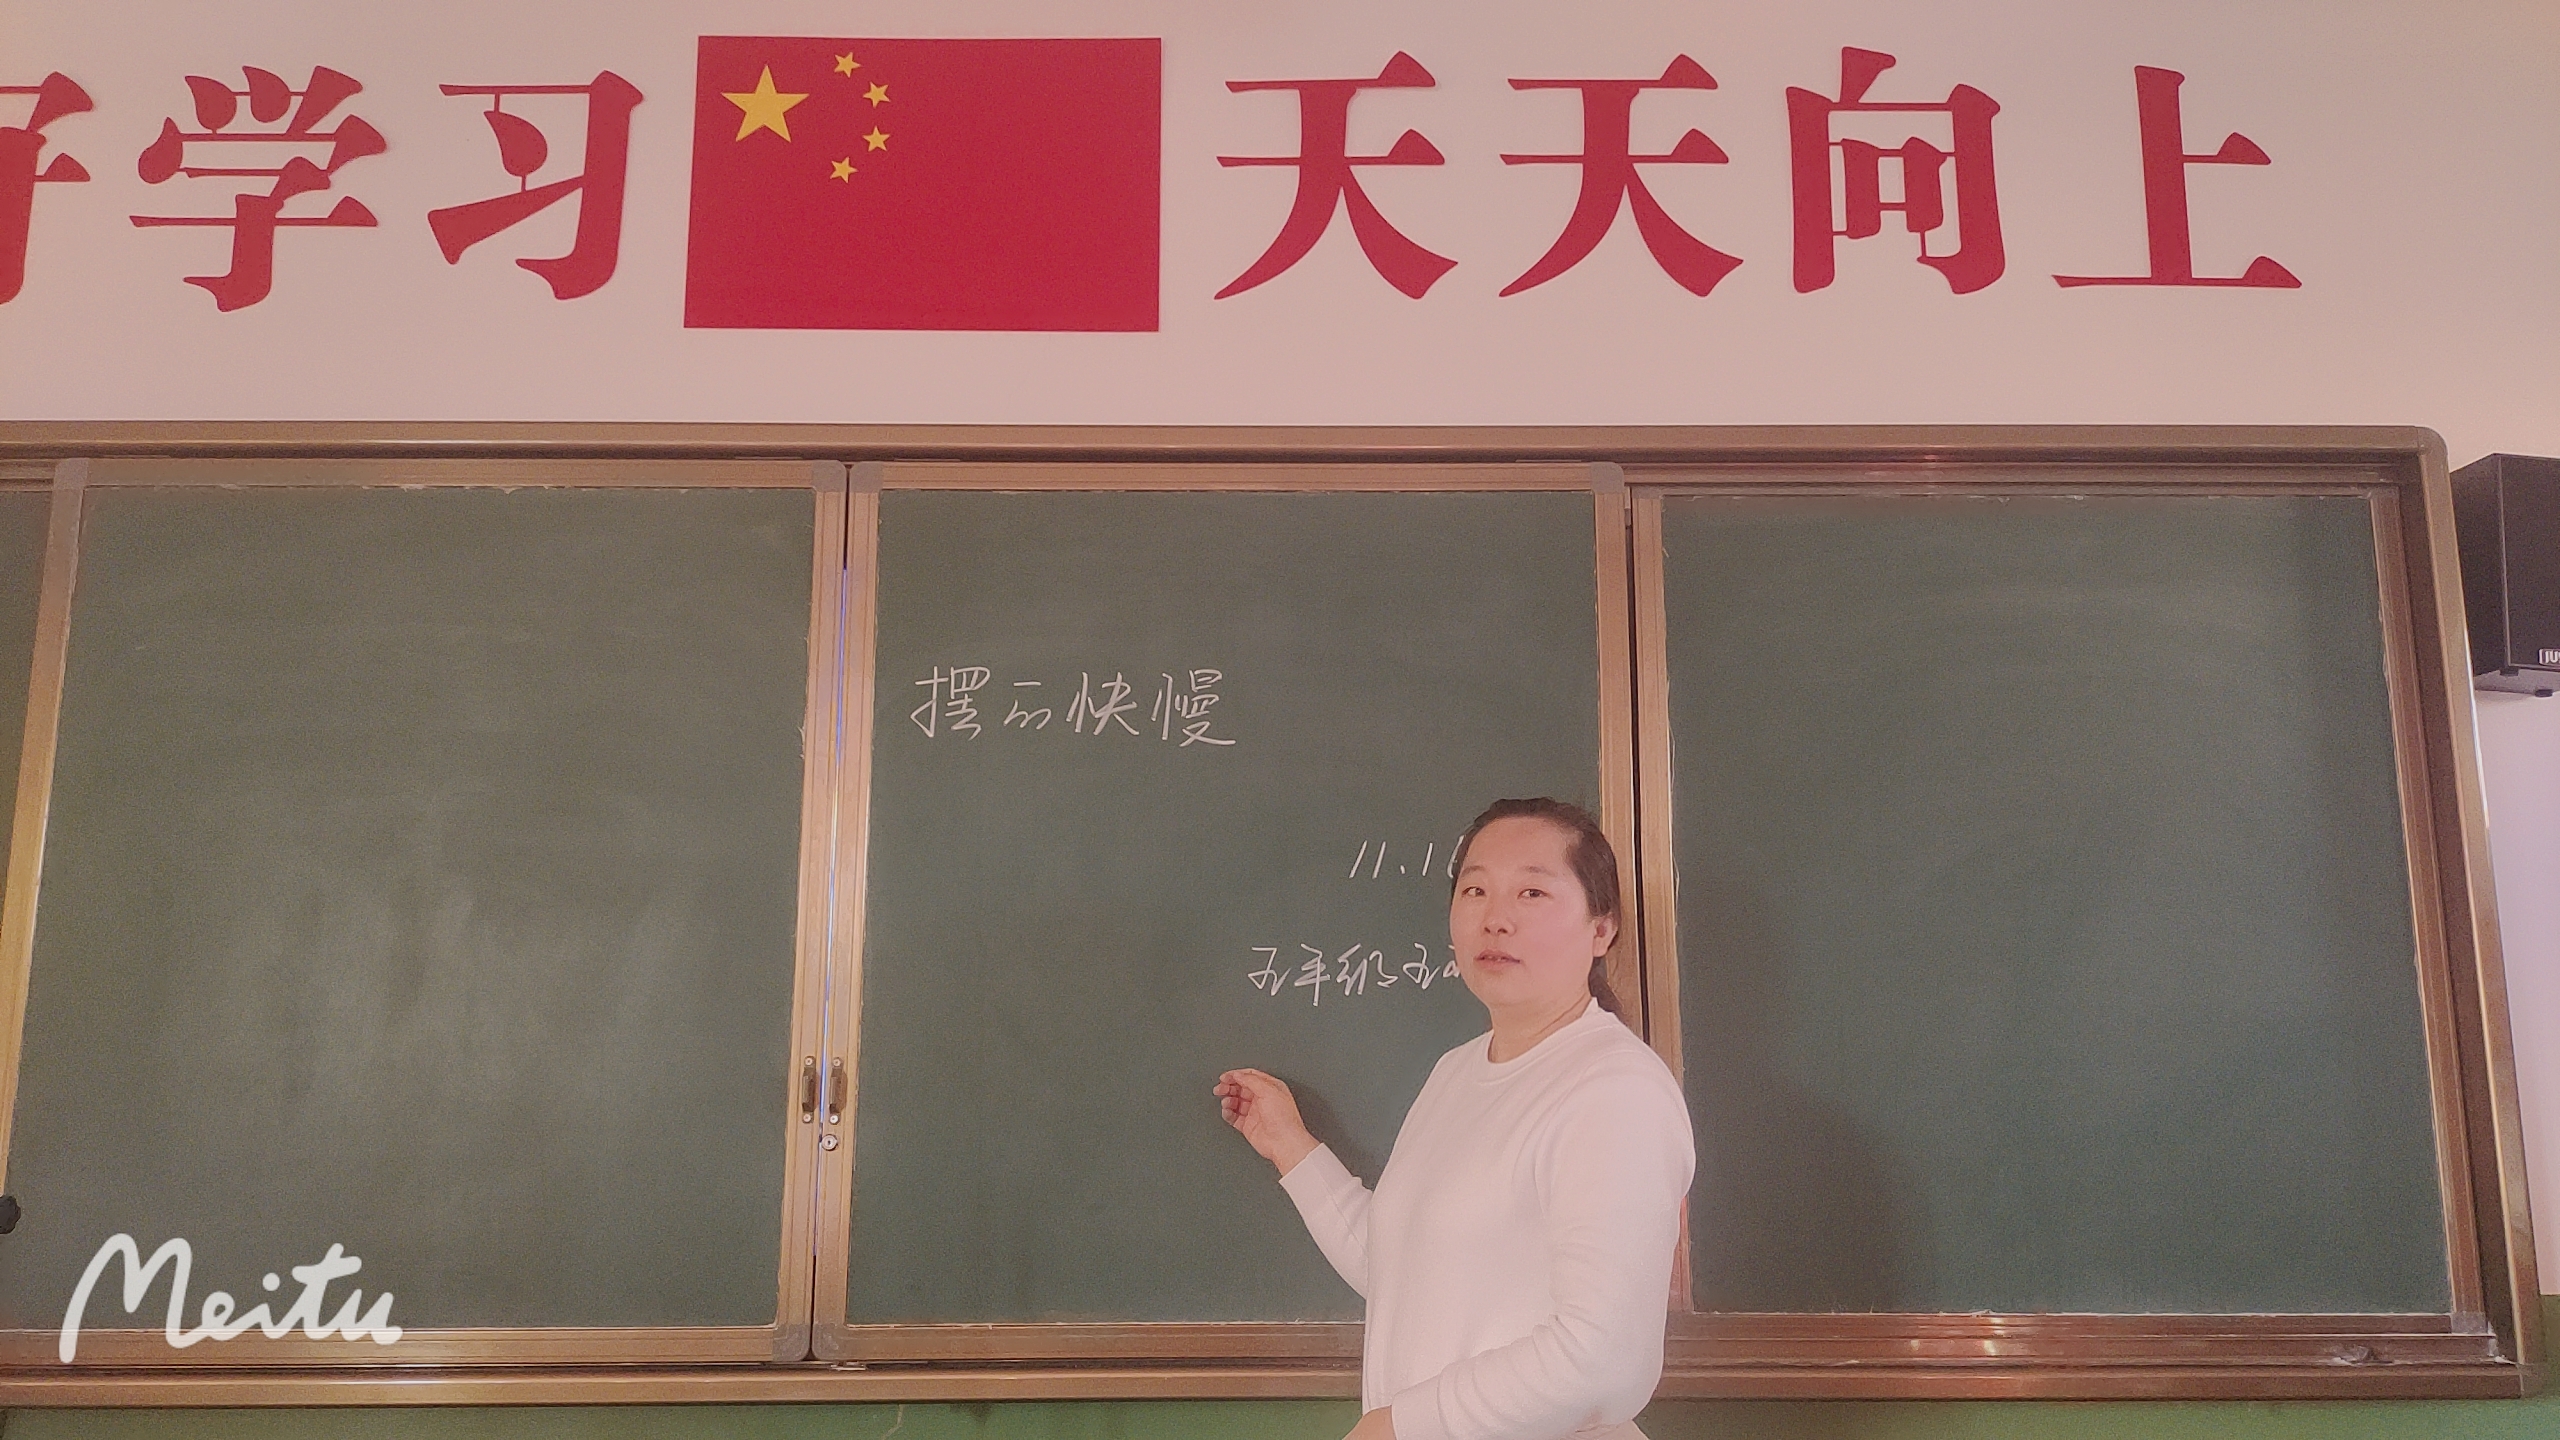 好学习 天天向上
摆的快慢
11.1
五年级五
Meitu